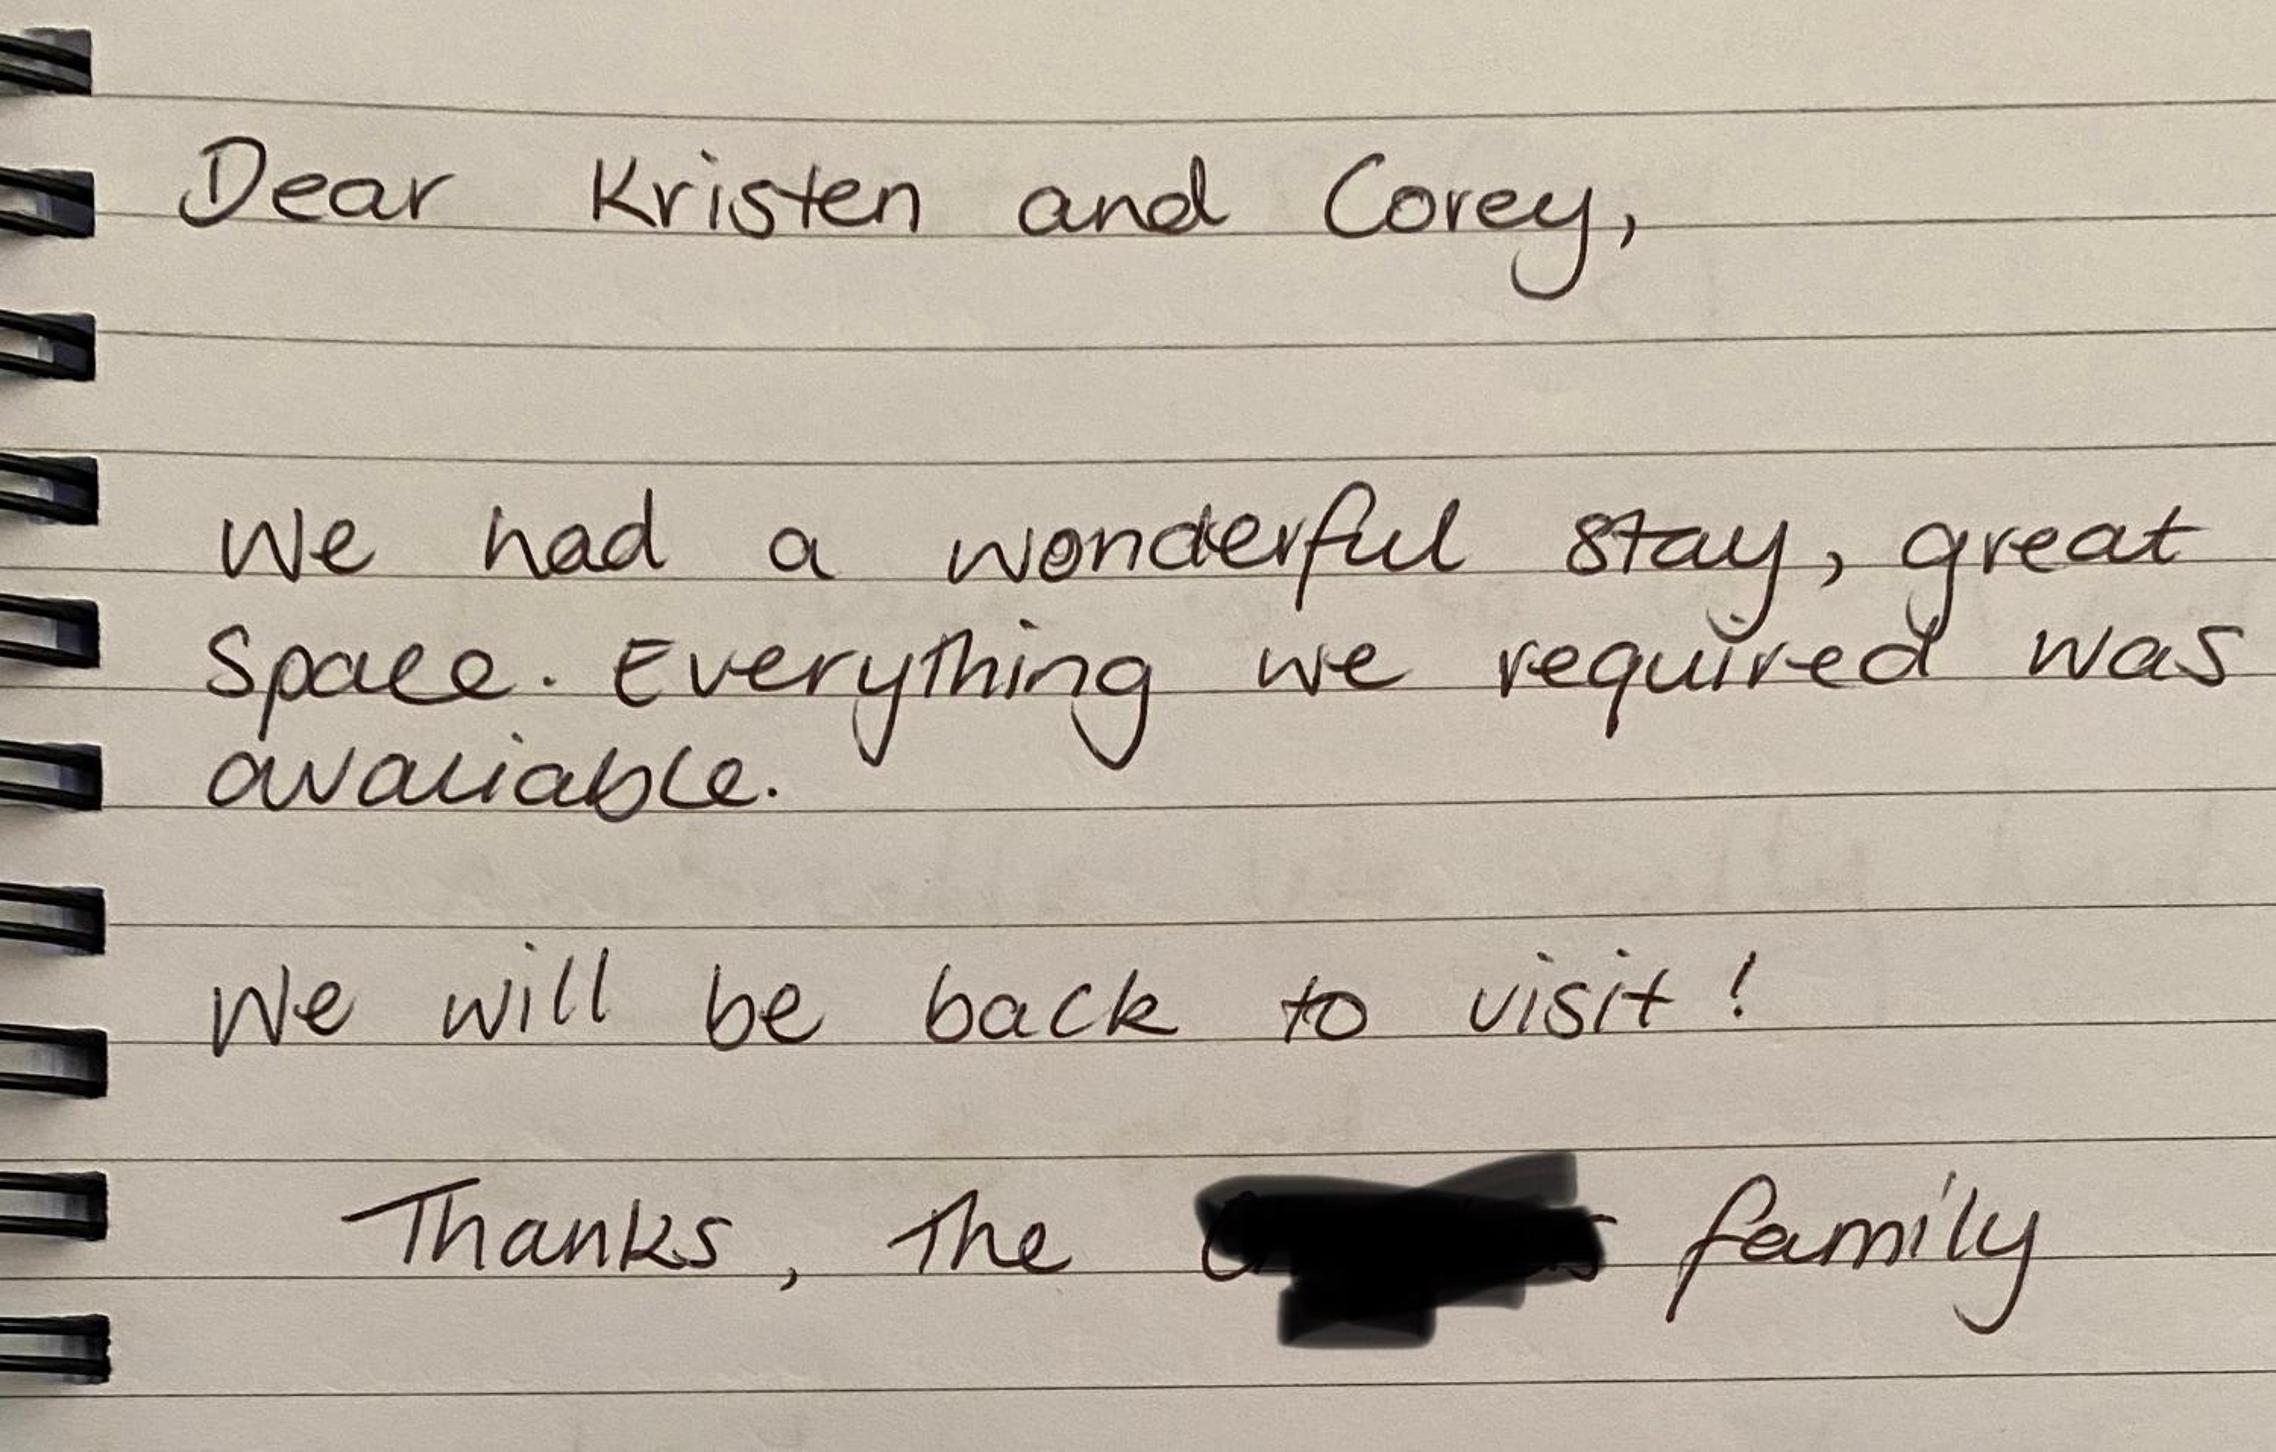 Dear Kristen and Corey,
We had a wonderful stay, great
space. Everything we required was
avaliable.
We will be back to visit!
Thanks, The family